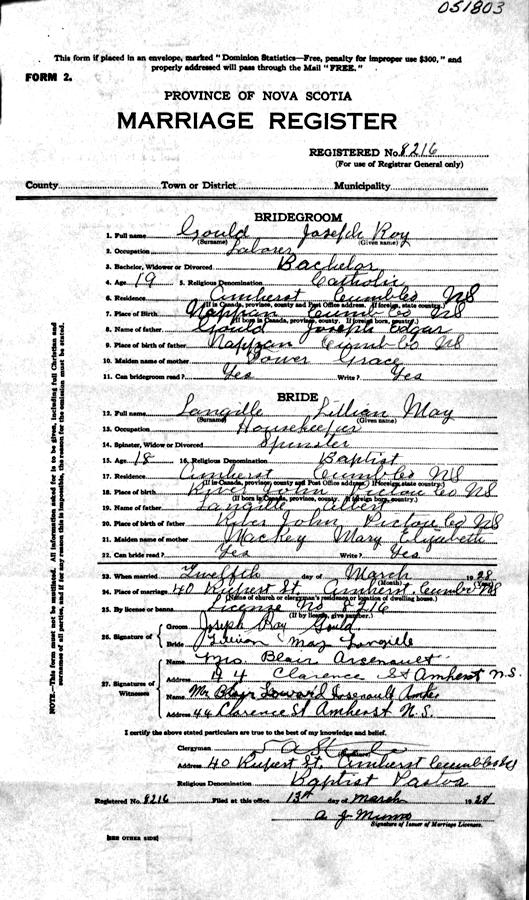 051803
This form if placed in an envelope, marked "Dominion Statistics—Free, penalty for improper use $300," and
properly addressed will pass through the Mail "FREE."
FORM 2.
PROVINCE OF NOVA SCOTIA
MARRIAGE REGISTER
REGISTERED No. 8216
(For use of Registrar General only)
County Town or District Municipality
BRIDEGROOM
1. Full name Gould Joseph Roy
(Surname) (Given name)
2. Occupation Laborer
3. Bachelor, Widower or Divorced Bachelor
4. Age 19 5. Religious Denomination Catholic
6. Residence Amherst Cumb Co NS
(If in Canada, province, county and Post Office address. If foreign, state country.)
7. Place of Birth Nappan Cumb Co NS
(If born in Canada, province, county. If foreign born, country.)
8. Name of father Gould Joseph Edgar
9. Place of birth of father Nappan Cumb Co NS
10. Maiden name of mother Tower Grace
11. Can bridegroom read? Yes Write? Yes
BRIDE
12. Full name Langille Lillian May
(Surname) (Given name)
13. Occupation Housekeeper
14. Spinster, Widow or Divorced Spinster
15. Age 18 16. Religious Denomination Baptist
17. Residence Amherst Cumb Co NS
(If in Canada, province, county and Post Office address. If foreign, state country.)
18. Place of birth River John Pictou Co NS
(If born in Canada, province, county. If foreign born, country.)
19. Name of father Langille Albert
20. Place of birth of father River John Pictou Co NS
21. Maiden name of mother Mackey Mary Elizabeth
22. Can bride read? Yes Write? Yes
23. When married Twelfth day of March 1928
(Month) (Year)
24. Place of marriage 40 Rupert St. Amherst. Cumb Co NS
(Name of church or clergyman's residence or location of dwelling house.)
25. By license or banns License No 8216
(If by license, give number.)
26. Signature of Groom Joseph Roy Gould
Bride Lillian May Langille
27. Signatures of Witnesses
Name Mrs Blair Arsenault
Address 44 Clarence St Amherst N.S.
Name Mr Blair Arsenault
Address 44 Clarence St Amherst N.S.
I certify the above stated particulars are true to the best of my knowledge and belief.
Clergyman
(Signature)
Address 40 Rupert St. Amherst Cumb Co NS
Religious Denomination Baptist Pastor
Registered No. 8216 Filed at this office 13th day of March 1928
A J Munro
Signature of Issuer of Marriage Licenses.
[SEE OTHER SIDE]
NOTE.—This form must not be mutilated. All information asked for is to be given, including full Christian and
surnames of all parties, and if for any reason this is impossible, the reason for the omission must be stated.